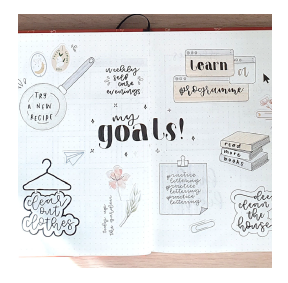 weekly
self care
evenings
learn
programme
TRY
A NEW
RECIPE
my
goals!
read
more
books
practice
lettering
practice
lettering
practice
lettering
clear
out
clothes
tidy up
the garden
clean
the
house